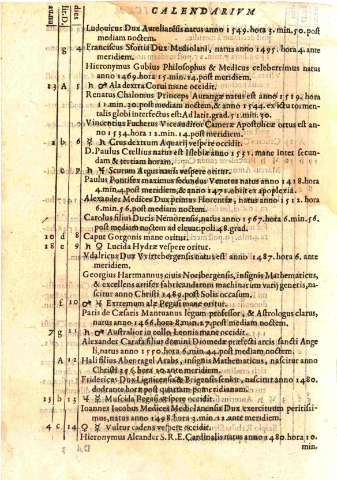 CALENDARIVM
Ludouicus Dux Aureliatēsis natus anno 1549. hora 3. min. 50. post
mediam noctem.
g 4 Franciscus Sfortia Dux Mediolani, natus anno 1495. hora 4. ante
meridiem.
Hieronymus Gubius Philosophus & Medicus celeberrimus natus
anno 1469. hora 15. min. 14. post meridiem.
13 A 5 ♄ ♂ Ala dextra Corui mane occidit.
Renatus Chalonius Princeps Aurangæ natus est anno 1519. hora
11. min. 30. post mediam noctem, & anno 1544. ex ictu tormen-
talis globi interfectus est. Ad latit. grad. 51. min. 30.
Vincentius Fucherus Viceauditor Cameræ Apostolicæ ortus est an-
no 1534. hora 11. min. 14. post meridiem.
2 b 6 ♄ Crus dextrum Aquarij vespere occidit.
D. Paulus Crellius natus est Islebiæ anno 1531. mane inter secun-
dam & tertiam horam.
c 7 ♄ Scutum Argus nauis vespere oritur.
Paulus Pontifex maximus secundus Venetus natus anno 1418. hora
4. min. 4. post meridiem, & anno 1471. obijt ex apoplexia.
Alexander Medices Dux primus Florentiæ, natus anno 1512. hora
6. min. 56. post mediam noctem.
Carolus filius Ducis Niuernensis, natus anno 1567. hora 6. min. 56.
post mediam noctem ad eleuat. poli 48. grad.
10 d 8 Caput Gorgonis mane oritur.
18 e 9 ♄ ♀ Lucida Hydræ vespere oritur.
Vdalricus Dux VVirtebergensis natus est anno 1487. hora 6. ante
meridiem.
Georgius Hartmannus ciuis Noribergensis, insignis Mathematicus,
& excellens artifex fabricandarum machinarum varij generis, na-
scitur anno Christi 1489. post Solis occasum.
f 10 Extremum alæ Pegasi mane oritur.
Paris de Cæsaris Mantuanus legum professor, & Astrologus clarus,
natus anno 1466. hora 8. min. 27. post mediam noctem.
7 g 11 ♄ ♂ Australior in collo Leonis mane occidit.
Alexander Carafa filius domini Diomedæ præfecti arcis sancti Ange
li, natus anno 1550. hora 6. min. 44. post mediam noctem.
A 12 Hali filius Abenragel Arabs, insignis Mathematicus, nascitur anno
Christi 356. hora 20. ante meridiem.
Fridericus Dux Lignicensis & Brigensis senior, nascitur anno 1480.
dodrante horæ post quartam pomeridianam.
15 b 13 Muscida Pegasi vespere occidit.
Ioannes Iacobus Medices Mediolanensis Dux exercituum peritissi-
mus, natus anno 1498. hora 3. min. 12. ante meridiem.
4 c 14 Vultur cadens vespere occidit.
Hieronymus Aleander S.R.E. Cardinalis natus anno 1480. hora 10.
min.